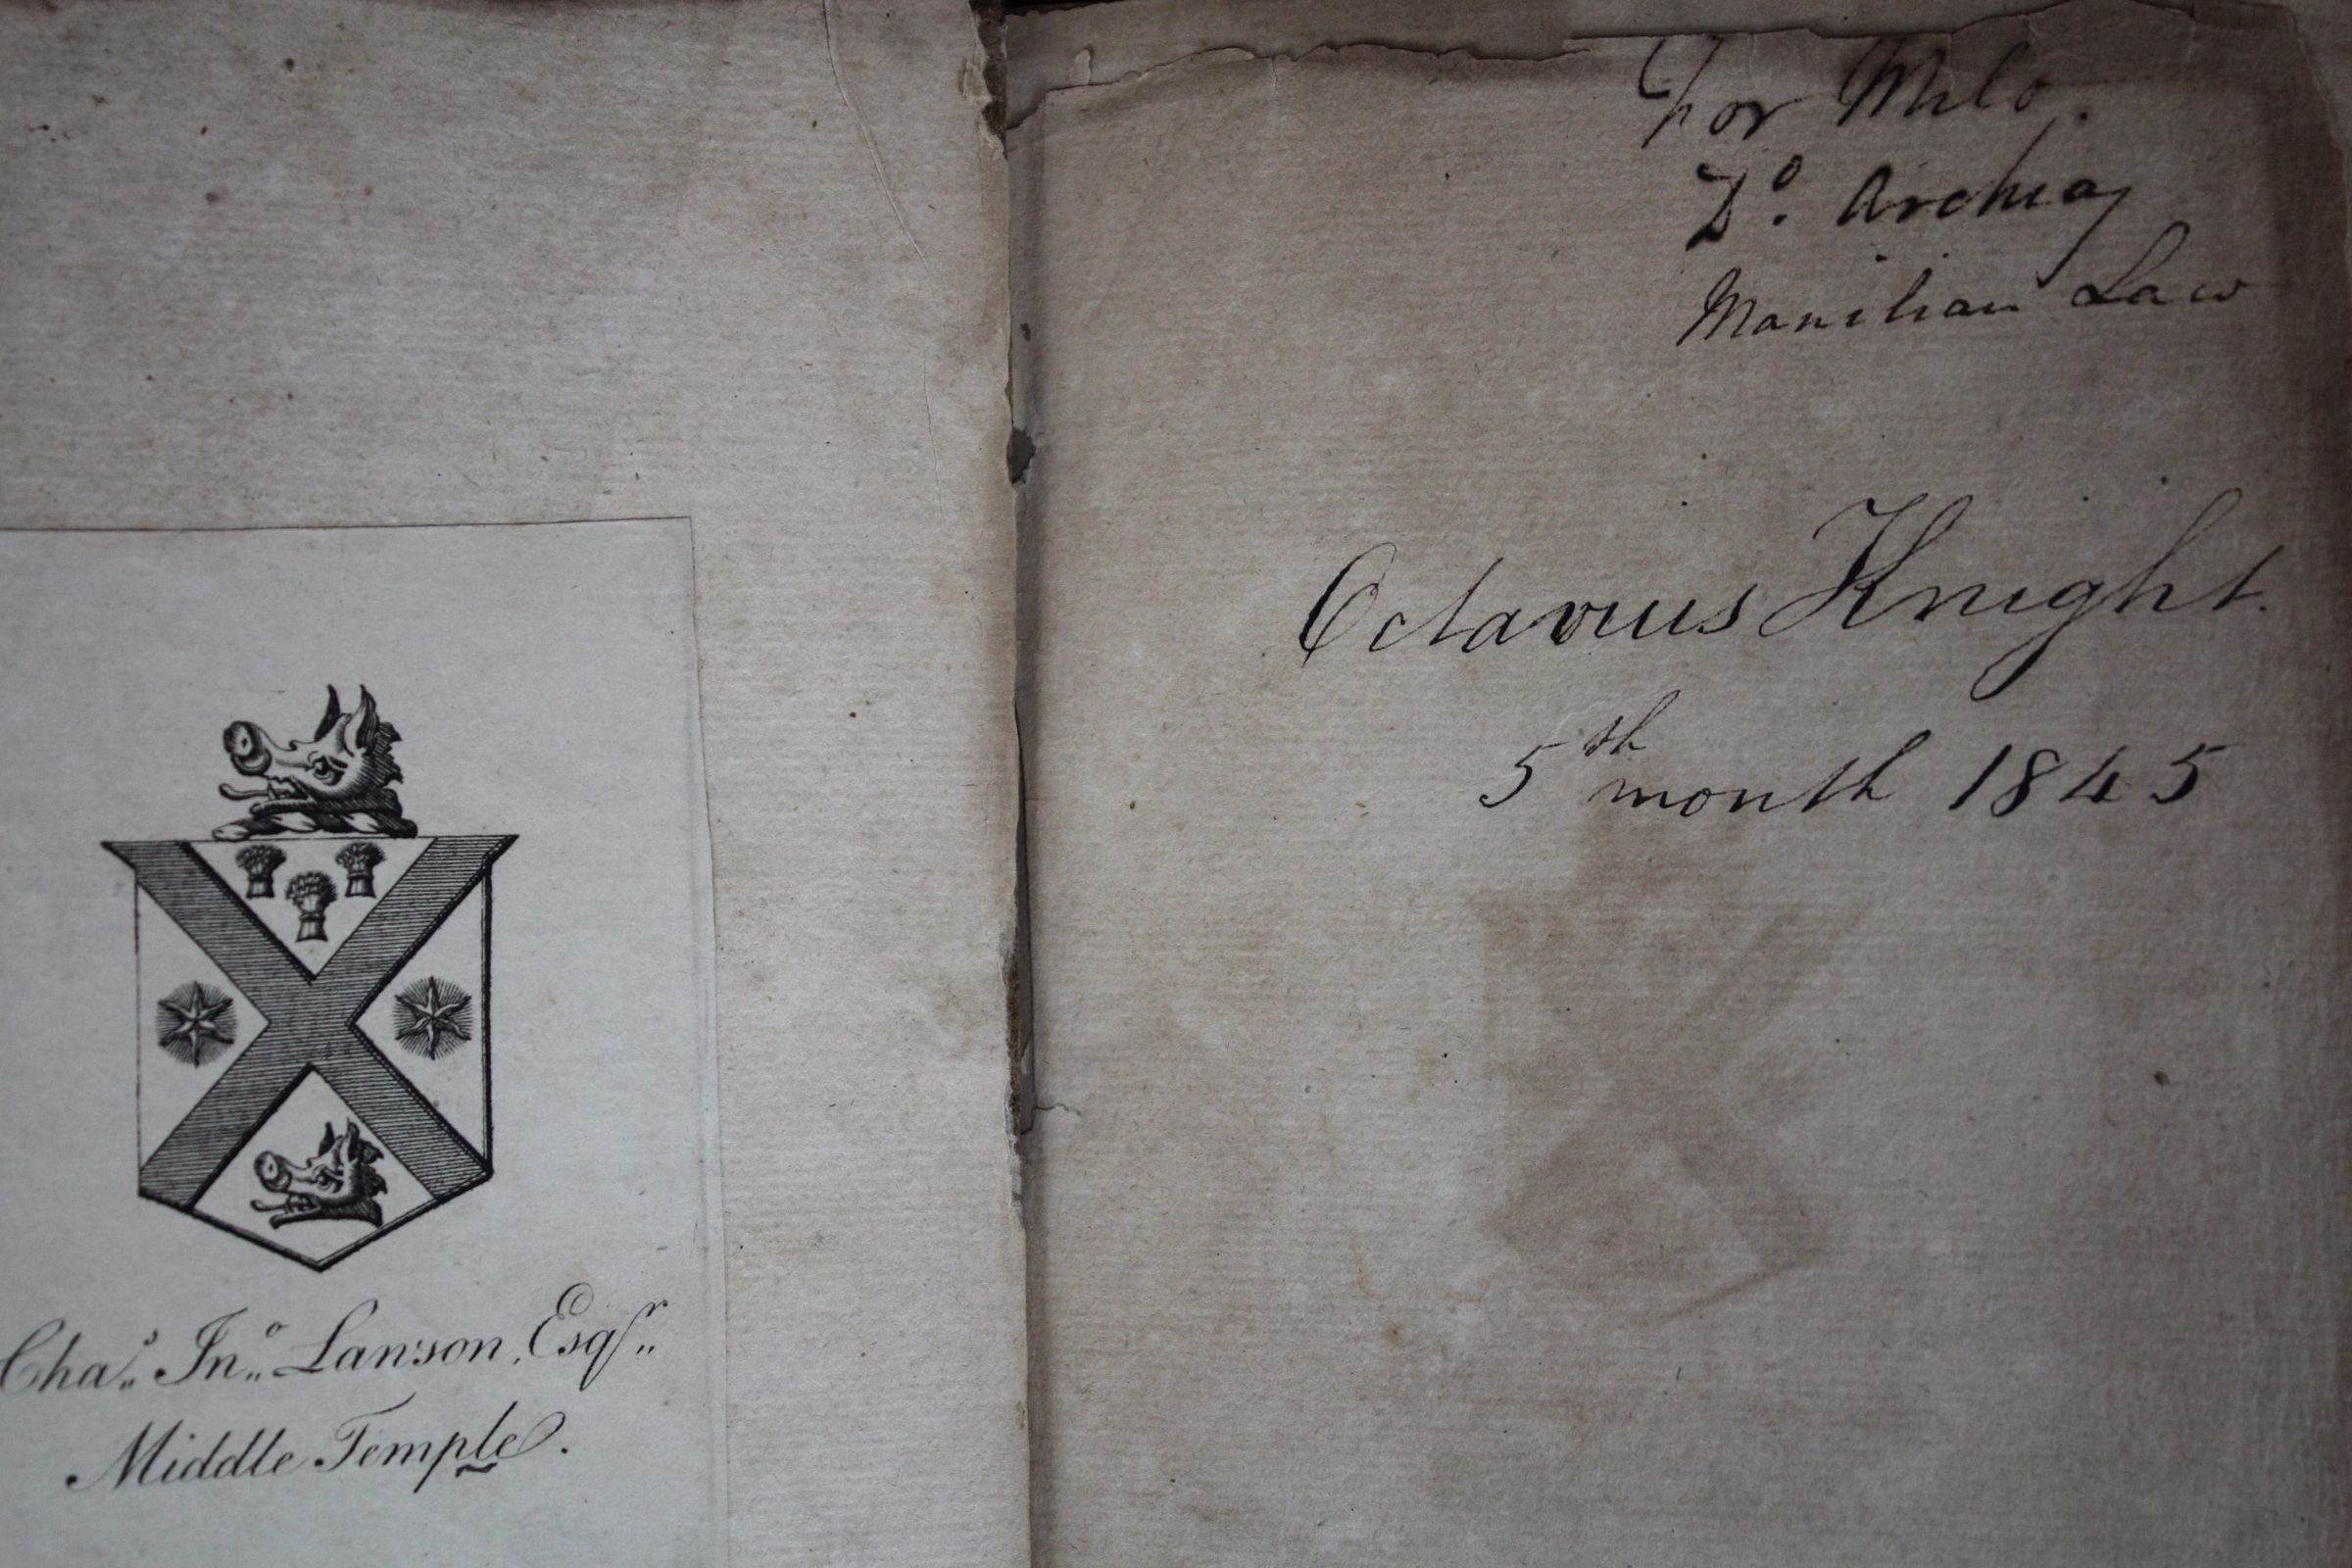 Chas. Jno. Lanson, Esqr.
Middle Temple.
For Milo.
Do. Archias
Manilian Law
Octavius Knight.
5th month 1845